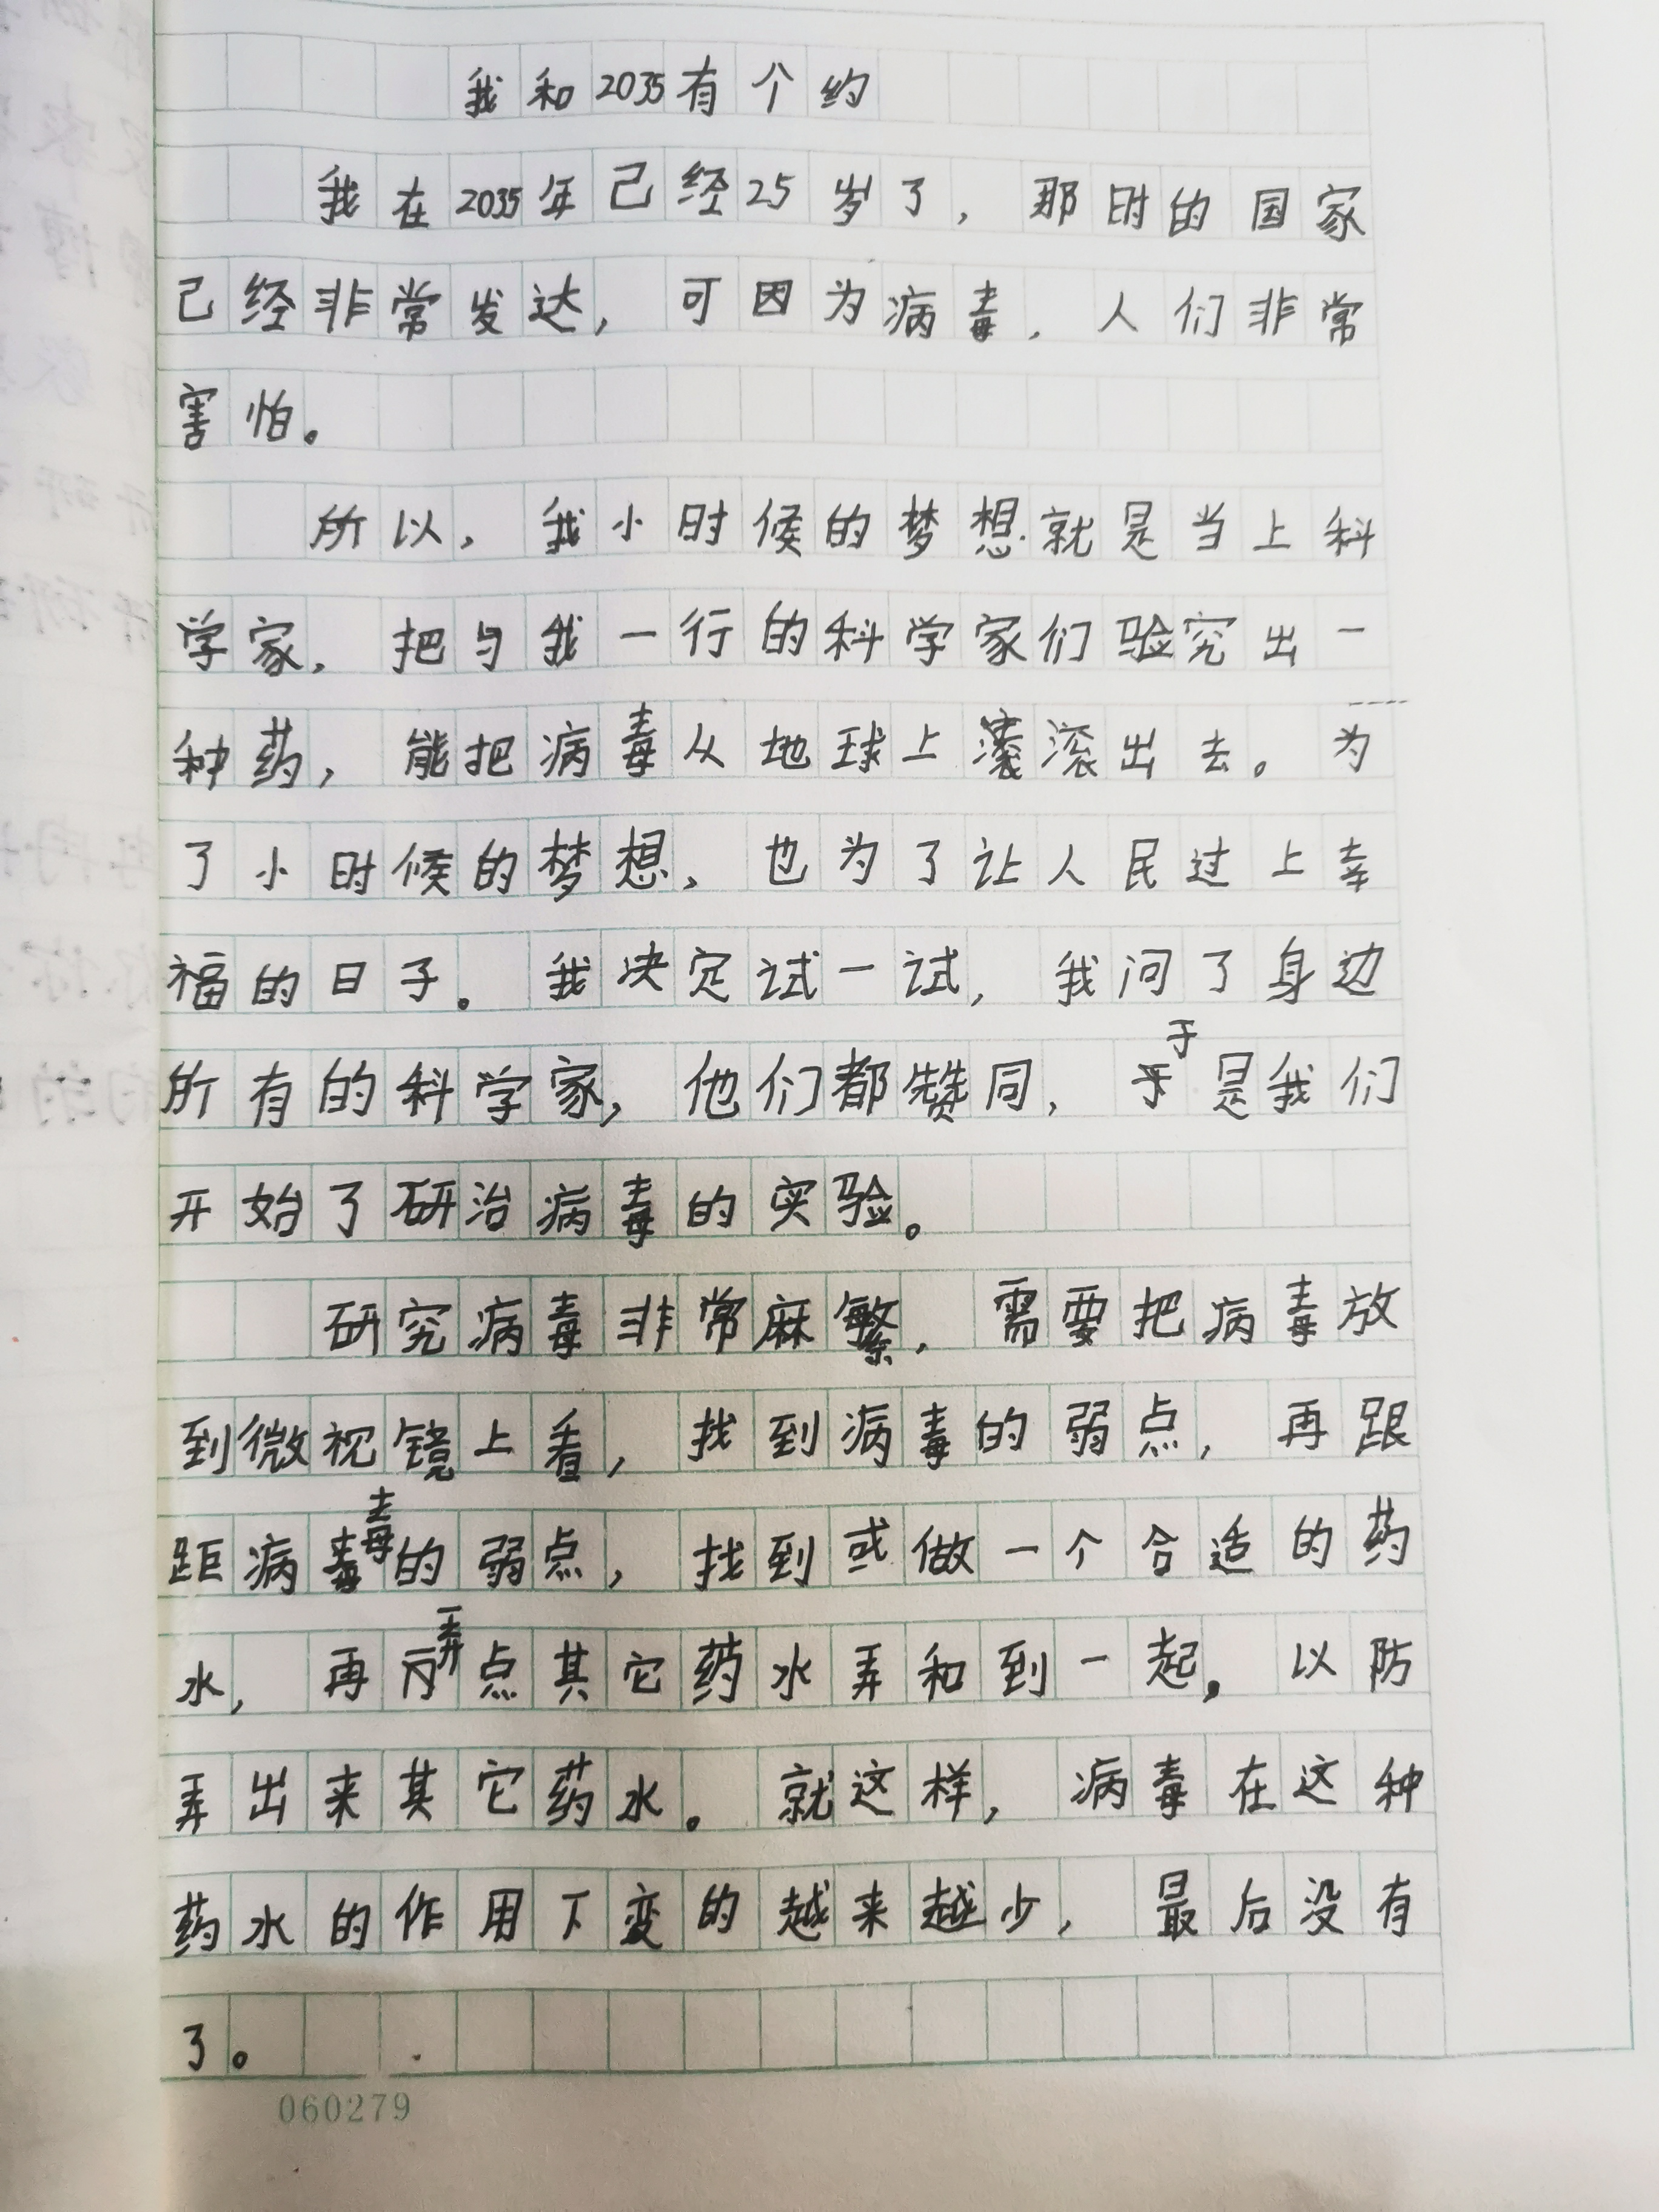 我和2035有个约
我在2035年己经25岁了，那时的国家
己经非常发达，可因为病毒，人们非常
害怕。
所以，我小时候的梦想就是当上科
学家，把与我一行的科学家们验究出一
种药，能把病毒从地球上滚滚出去。为
了小时候的梦想，也为了让人民过上幸
福的日子。我决定试一试，我问了身边
所有的科学家，他们都赞同，于是我们
开始了研治病毒的实验。
研究病毒非常麻繁，需要把病毒放
到微视镜上看，找到病毒的弱点，再跟
距病毒的弱点，找到或做一个合适的药
水，再弄点其它药水弄和到一起，以防
弄出来其它药水。就这样，病毒在这种
药水的作用下变的越来越少，最后没有
了。
060279